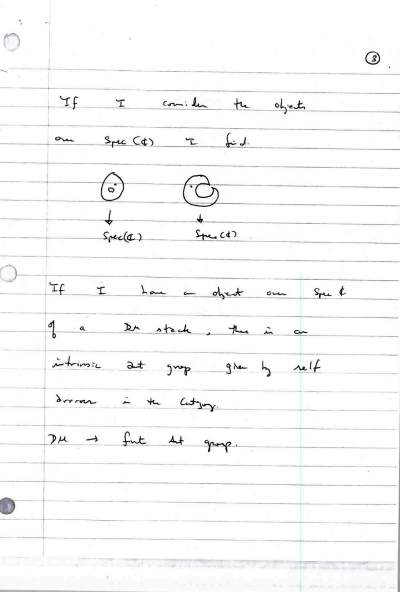 3
If I consider the objects
over Spec(ℂ) I find.
Spec(ℂ) Spec(ℂ)
If I have an object over Spec ℂ
of a DM stack, there is an
intrinsic aut group given by self
arrows in the category.
DM → finite aut group.